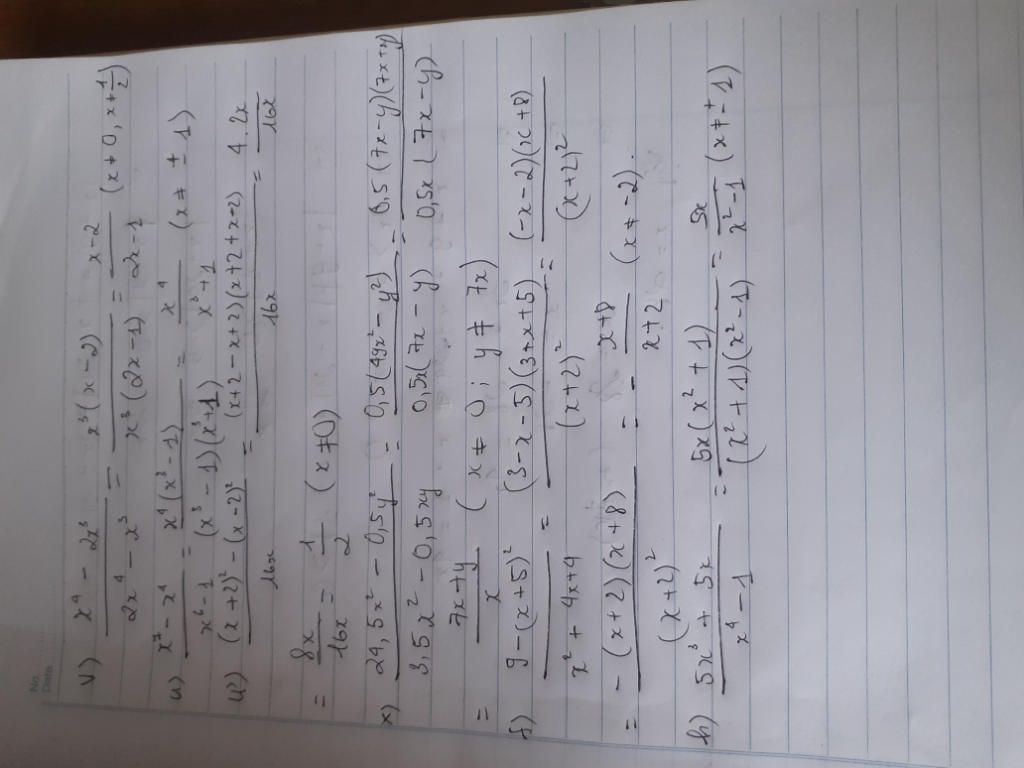 No.
Date
v) (x⁴ - 2x³)/(2x⁴ - x³) = x³(x-2)/x³(2x-1) = (x-2)/(2x-1) (x ≠ 0, x ≠ 1/2)
u) (x⁷ - x⁴)/(x⁶ - 1) = x⁴(x³-1)/(x³-1)(x³+1) = x⁴/(x³+1) (x ≠ ±1)
ü) ((x+2)² - (x-2)²)/16x = (x+2-x+2)(x+2+x-2)/16x = 4.2x/16x
= 8x/16x = 1/2 (x ≠ 0)
x) (24,5x² - 0,5y²)/(3,5x² - 0,5xy) = 0,5(49x² - y²)/0,5x(7x - y) = 0,5(7x-y)(7x+y)/0,5x(7x-y)
= (7x+y)/x (x ≠ 0; y ≠ 7x)
f) (9-(x+5)²)/(x² + 4x+4) = (3-x-5)(3+x+5)/(x+2)² = (-x-2)(x+8)/(x+2)²
= -(x+2)(x+8)/(x+2)² = - (x+8)/(x+2) (x ≠ -2).
h) (5x³ + 5x)/(x⁴ - 1) = 5x(x² + 1)/(x²+1)(x²-1) = 5x/(x²-1) (x ≠ ±1)